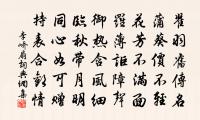 翟羽舊傳名
蒲葵價不輕
花芳不滿面
羅薄詎障聲
御熱含風細
臨秋帶月明
同心如可贈
持表合歡情
李嶠扇詞典網集